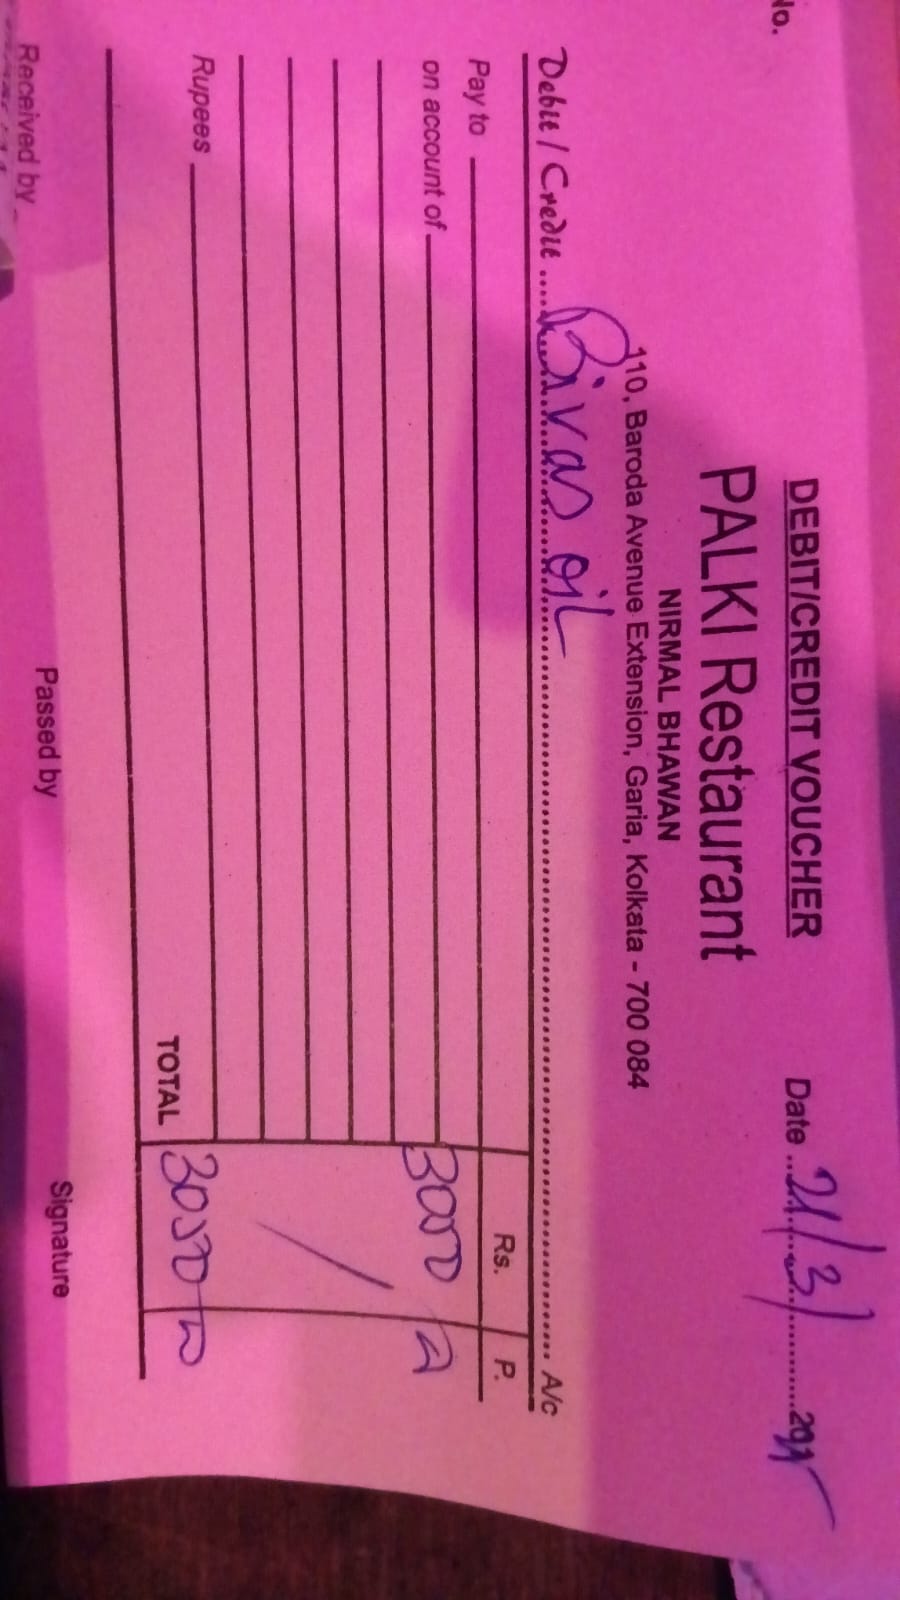 No.
DEBIT/CREDIT VOUCHER
Date 21/3/
PALKI Restaurant
NIRMAL BHAWAN
110, Baroda Avenue Extension, Garia, Kolkata - 700 084
Debit / Credit Bivas oil A/c
Rs. P.
Pay to
on account of 3000
Rupees
TOTAL 3000
Received by Passed by Signature